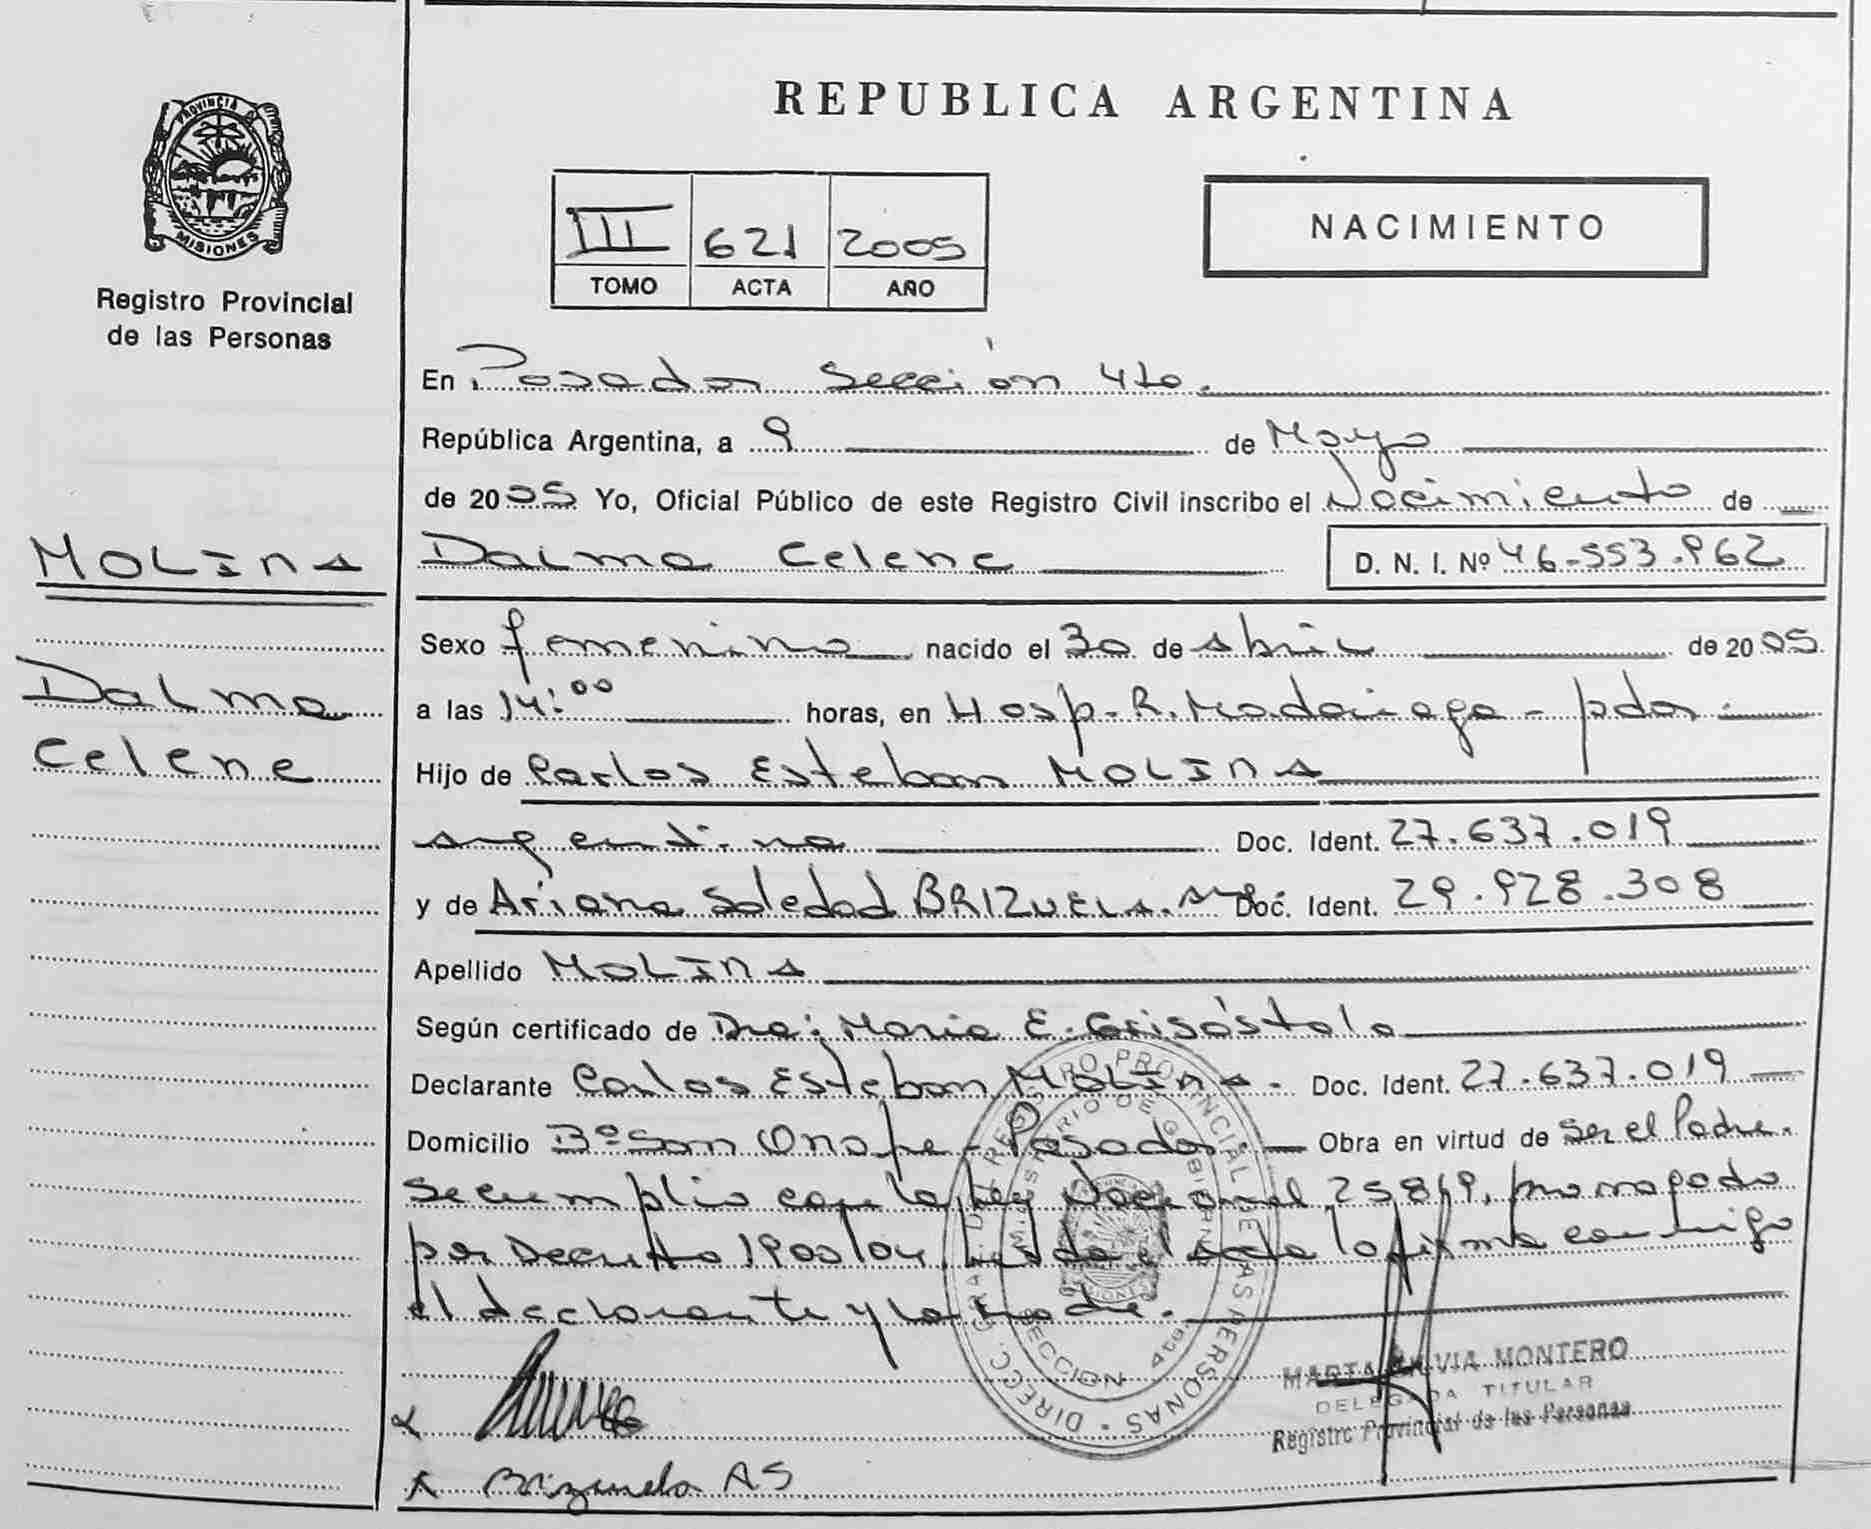 PROVINCIA DE
MISIONES
Registro Provincial
de las Personas
MOLINA
Dalma
Celene
REPUBLICA ARGENTINA
III 621 2005
TOMO ACTA AÑO
NACIMIENTO
En Posadas Sección 4to.
República Argentina, a 9 de Mayo
de 2005 Yo, Oficial Público de este Registro Civil inscribo el Nacimiento de
Dalma Celene D. N. I. Nº 46.553.962
Sexo femenino nacido el 30 de Abril de 2005
a las 14:00 horas, en Hosp. R. Madariaga - pdas.
Hijo de Carlos Esteban MOLINA
argentino Doc. Ident. 27.637.019
y de Ariana Soledad BRIZUELA. arg. Doc. Ident. 29.928.308
Apellido MOLINA
Según certificado de Dra: Maria E. Crisóstolo
Declarante Carlos Esteban MOLINA. Doc. Ident. 27.637.019
Domicilio Bº San Onofre - Posadas. Obra en virtud de ser el Padre.
Se cumplio con la ley Nacional 25819, prorrogado
por Decreto 1900/04, Leída el acta la firma conmigo
el declarante y la madre.
DIRECC. GRAL. DEL REGISTRO PROVINCIAL DE LAS PERSONAS
MINISTERIO DE GOBIERNO
SECCION 4ta
MARTA SILVIA MONTERO
DELEGADA TITULAR
Registro Provincial de las Personas
x Brizuela AS